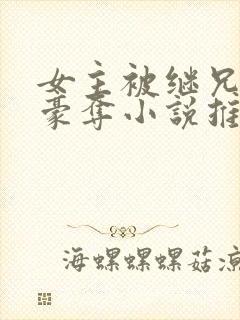 女主被继兄
豪夺小说推
海螺螺螺菇凉